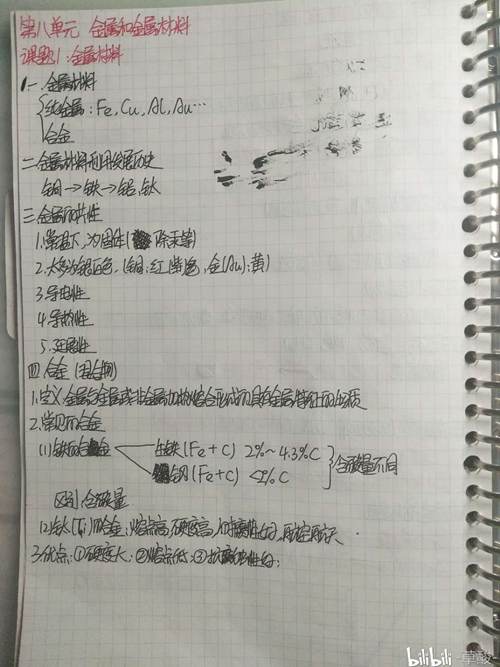 第八单元 金属和金属材料
课题1:金属材料
一、金属材料
纯金属:Fe,Cu,Al,Au…
合金
二、金属材料利用发展历史
铜→铁→铝、钛
三、金属的共性
1.常温下,为固体(除汞等)
2.大多为银白色,(铜:红紫色,金(Au):黄)
3.导电性
4.导热性
5.延展性
四、合金(混合物)
1.定义:金属与金属或非金属加热熔合形成的具有金属特征的物质
2.常见的合金
(1)铁的合金
生铁(Fe+C) 2%~4.3%C
钢(Fe+C) <2%C
含碳量不同
区别:含碳量
(2)钛(Ti)的合金:熔点高,硬度高,可塑性好,
3.优点:①硬度大;②熔点低;③抗腐蚀性好;
bilibili 草酸